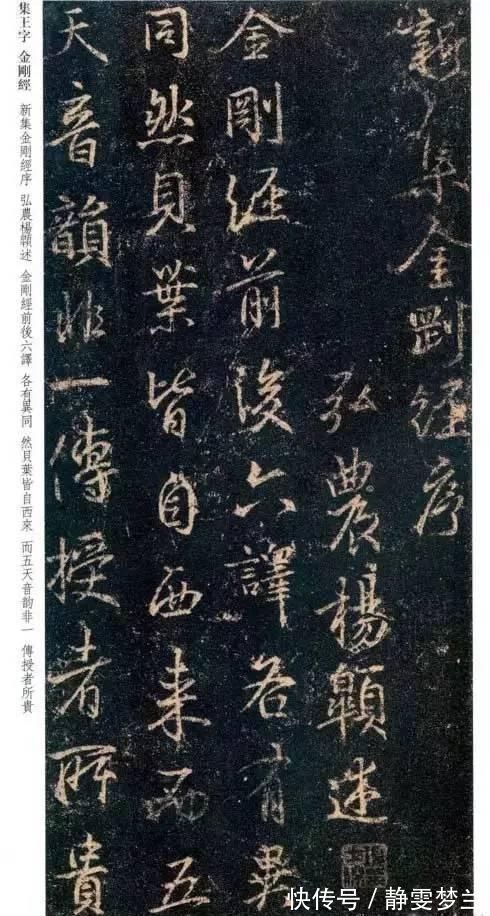 新集金剛經序
弘農楊述
金剛經前後六譯各有異
同然貝葉皆自西来而五
天音韻非一傳授者所貴
集王字 金剛經 新集金剛經序 弘農楊述 金剛經前後六譯 各有異同 然貝葉皆自西來 而五天音韵非一 傳授者所貴
快传号／静雯梦兰